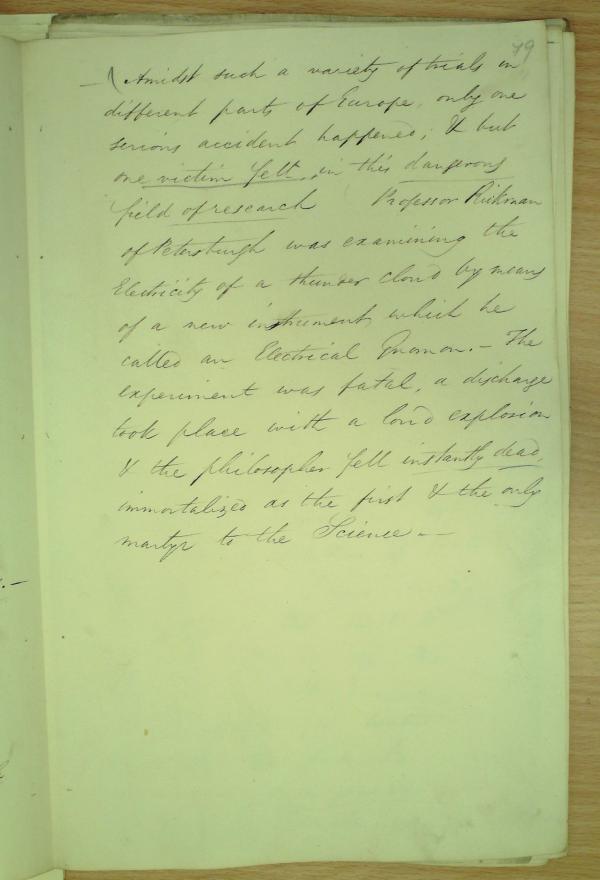 79
—( Amidst such a variety of trials in
different parts of Europe, only one
serious accident happened; & but
one victim fell in this dangerous
field of research Professor Rickman
of Petersburgh was examining the
Electricity of a thunder cloud by means
of a new instrument which he
called an Electrical Gnomon. – The
experiment was fatal, a discharge
took place with a loud explosion
& the philosopher fell instantly dead,
immortalized as the first & the only
martyr to the Science. —